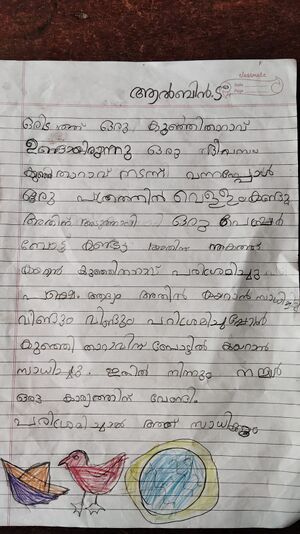 classmate
ആൽബിൻ.ട
ഒരിടത്ത് ഒരു കുഞ്ഞിതാറാവ്
ഉണ്ടായിരുന്നു ഒരു ദിവസം
കുഞ്ഞിതാറാവ് നടന്ന് വന്നപ്പോൾ
ഒരു പാത്രത്തിന് വെള്ളം കണ്ടു
അതിൽ ഒരു പേപ്പർ
ബോട്ട് കണ്ടു
കയറാൻ കുഞ്ഞിതാറാവ് പരിശമിച്ചു
പക്ഷെ ആദ്യം അതിൻ കയറാൻ സാധിച്ചി
വീണ്ടും വിണ്ടും പരിശമിച്ചപ്പോൾ
കുഞ്ഞി താറാവിന് ബോട്ടിൽ കയറാൻ
സാധിച്ചു. ഇതിൽ നിന്നും നമ്മൾ
ഒരു കാര്യത്തിന് വേണ്ടി.
പരിശമിച്ചാൽ അത് സാധിക്കും